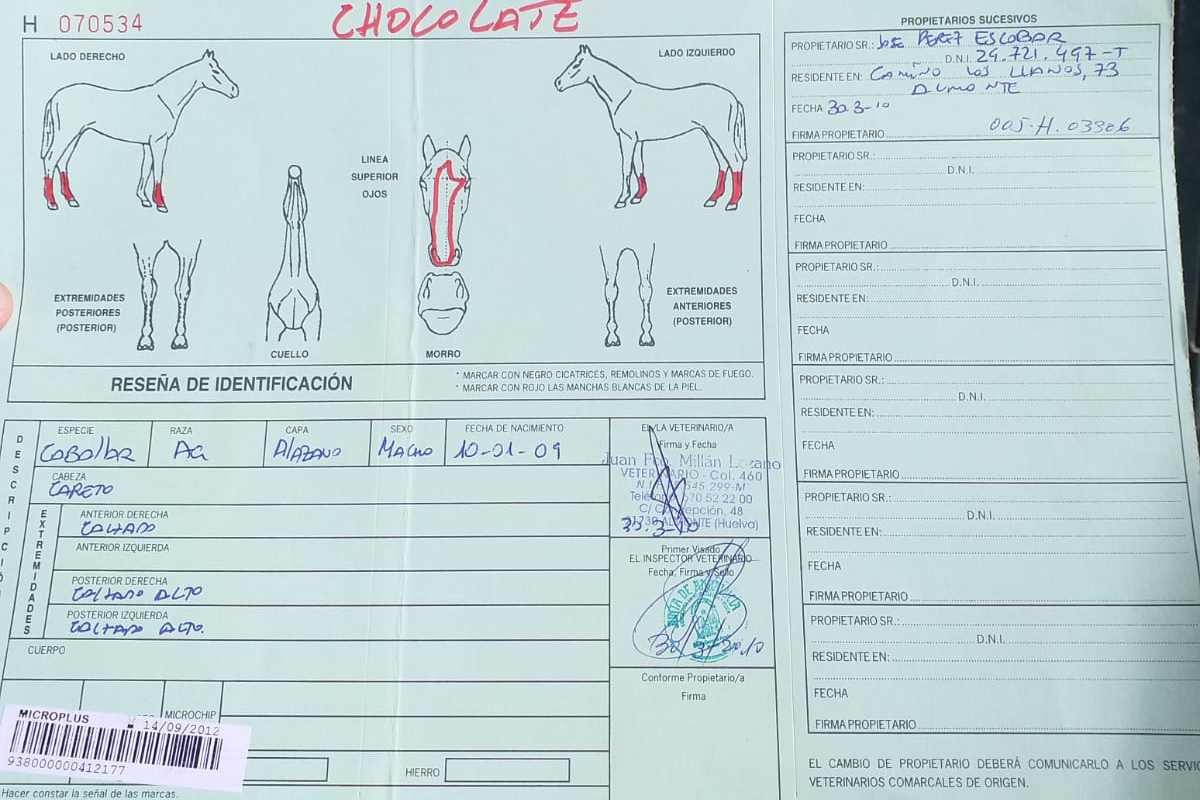 H 070534
CHOCOLATE
LADO DERECHO
LADO IZQUIERDO
LINEA
SUPERIOR
OJOS
EXTREMIDADES
POSTERIORES
(POSTERIOR)
CUELLO
MORRO
EXTREMIDADES
ANTERIORES
(POSTERIOR)
RESEÑA DE IDENTIFICACIÓN
* MARCAR CON NEGRO CICATRICES, REMOLINOS Y MARCAS DE FUEGO.
* MARCAR CON ROJO LAS MANCHAS BLANCAS DE LA PIEL.
ESPECIE RAZA CAPA SEXO FECHA DE NACIMIENTO
Caballar Alazano Macho 10-01-09
CABEZA
CARETO
EXTREMIDADES
ANTERIOR DERECHA
CALZADO
ANTERIOR IZQUIERDA
POSTERIOR DERECHA
CALZADO ALTO
POSTERIOR IZQUIERDA
CALZADO ALTO.
CUERPO
MICROCHIP
MICROPLUS 14/09/2012
938000000412177
HIERRO
Hacer constar la señal de las marcas.
EL/LA VETERINARIO/A
Firma y Fecha
Juan Fco. Millán Lozano
VETERINARIO - Col. 460
C/ Concepción, 48
21730 ALMONTE (Huelva)
30.3-10
Primer Visado
EL INSPECTOR VETERINARIO
Fecha, Firma y Sello
30/3/2010
Conforme Propietario/a
Firma
PROPIETARIOS SUCESIVOS
PROPIETARIO SR.: JOSE PEREZ ESCOBAR
D.N.I. 29.721.497-T
RESIDENTE EN: CAMINO LOS LLANOS, 73
ALMONTE
FECHA 30.3-10
FIRMA PROPIETARIO 005-H.03306
PROPIETARIO SR.:
D.N.I.
RESIDENTE EN:
FECHA
FIRMA PROPIETARIO
PROPIETARIO SR.:
D.N.I.
RESIDENTE EN:
FECHA
FIRMA PROPIETARIO
PROPIETARIO SR.:
D.N.I.
RESIDENTE EN:
FECHA
FIRMA PROPIETARIO
PROPIETARIO SR.:
D.N.I.
RESIDENTE EN:
FECHA
FIRMA PROPIETARIO
PROPIETARIO SR.:
D.N.I.
RESIDENTE EN:
FECHA
FIRMA PROPIETARIO
EL CAMBIO DE PROPIETARIO DEBERÁ COMUNICARLO A LOS
VETERINARIOS COMARCALES DE ORIGEN.